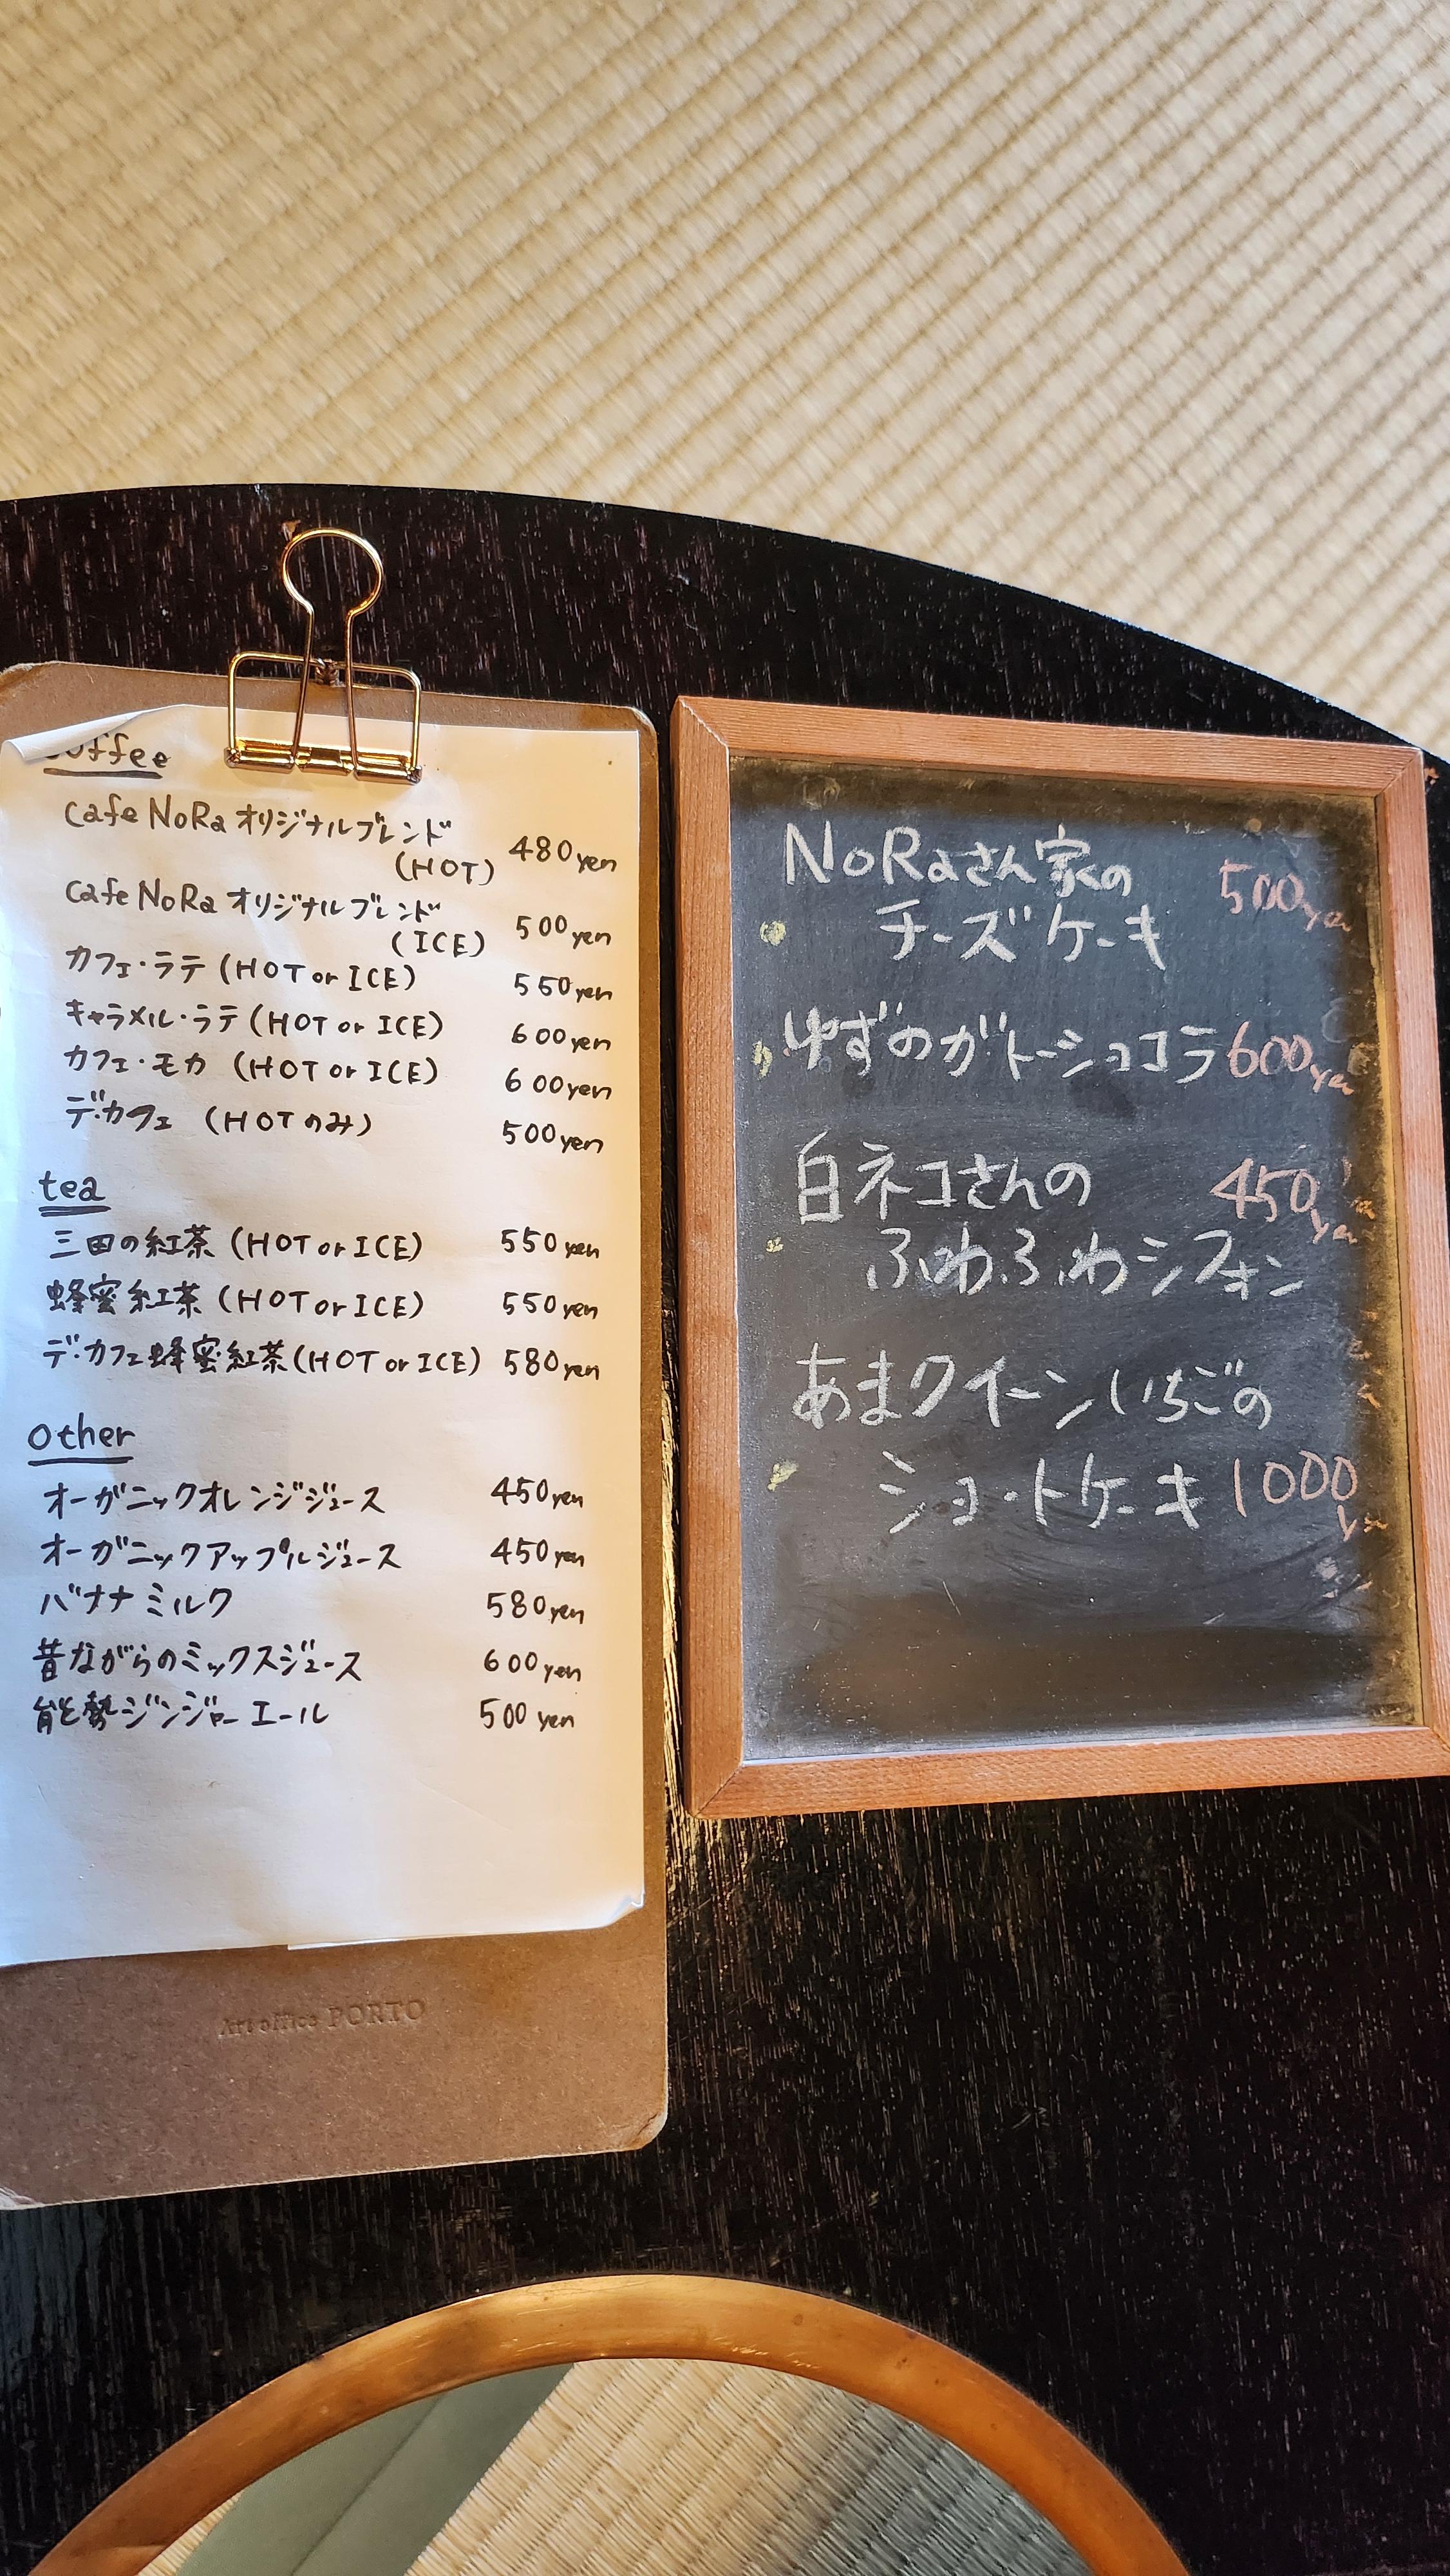 coffee
cafe NoRa オリジナルブレンド
(HOT) 480yen
cafe NoRa オリジナルブレンド
(ICE) 500yen
カフェ・ラテ (HOT or ICE) 550yen
キャラメル・ラテ (HOT or ICE) 600yen
カフェ・モカ (HOT or ICE) 600yen
デ・カフェ (HOTのみ) 500yen
tea
三田の紅茶 (HOT or ICE) 550yen
蜂蜜紅茶 (HOT or ICE) 550yen
デ・カフェ蜂蜜紅茶 (HOT or ICE) 580yen
other
オーガニックオレンジジュース 450yen
オーガニックアップルジュース 450yen
バナナミルク 580yen
昔ながらのミックスジュース 600yen
能勢ジンジャーエール 500yen
Art office PORTO
NoRaさん家の 500yen
チーズケーキ
ゆずのガトーショコラ 600yen
白ネコさんの 450yen
ふわふわシフォン
あまクイーンいちごの
ショートケーキ 1000
yen